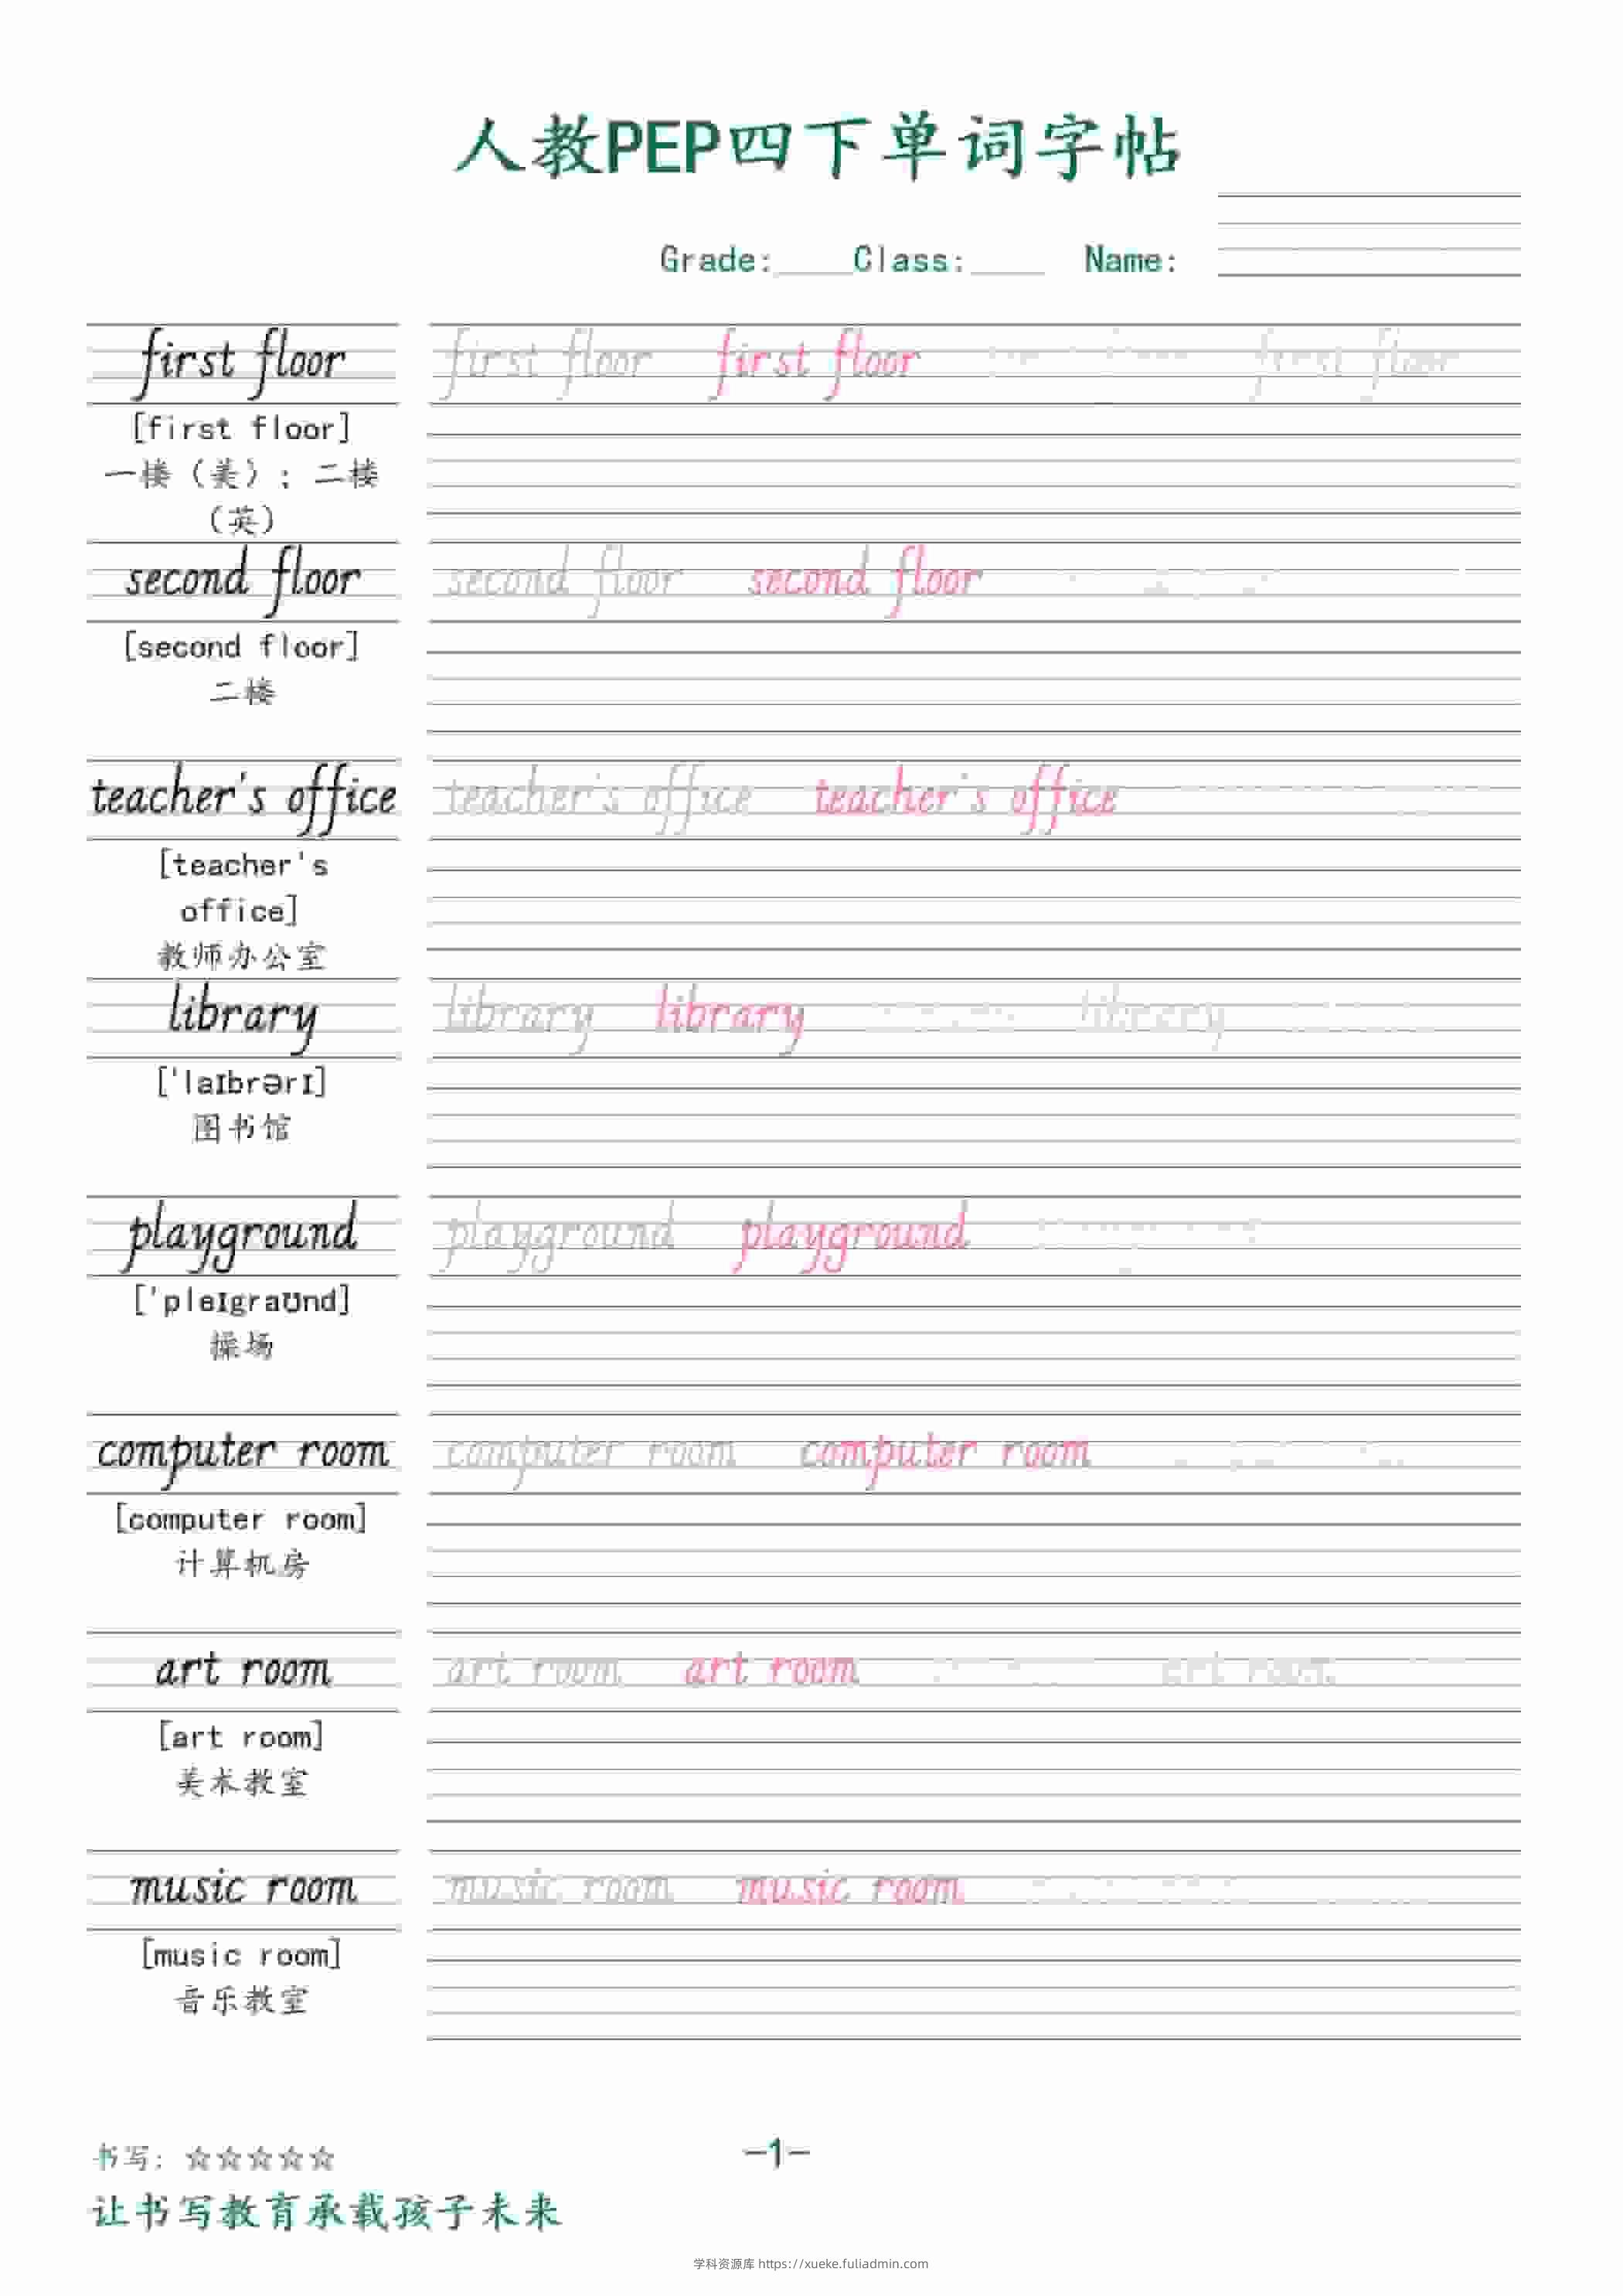 人教PEP四下单词字帖
Grade:____Class:____ Name:
first floor first floor first floor first floor
[first floor]
一楼（美）；二楼
（英）
second floor second floor second floor
[second floor]
二楼
teacher's office teacher's office teacher's office
[teacher's
office]
教师办公室
library library library library
['laɪbrərɪ]
图书馆
playground playground playground
['pleɪgraʊnd]
操场
computer room computer room computer room
[computer room]
计算机房
art room art room art room art room
[art room]
美术教室
music room music room music room
[music room]
音乐教室
书写：☆☆☆☆☆
-1-
让书写教育承载孩子未来
学科资源库 https://xueke.fuliadmin.com